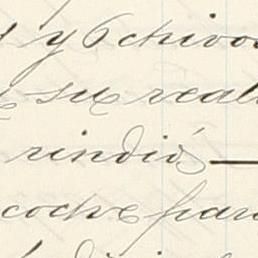 y 6 chivos
su real
rindió —
coche par